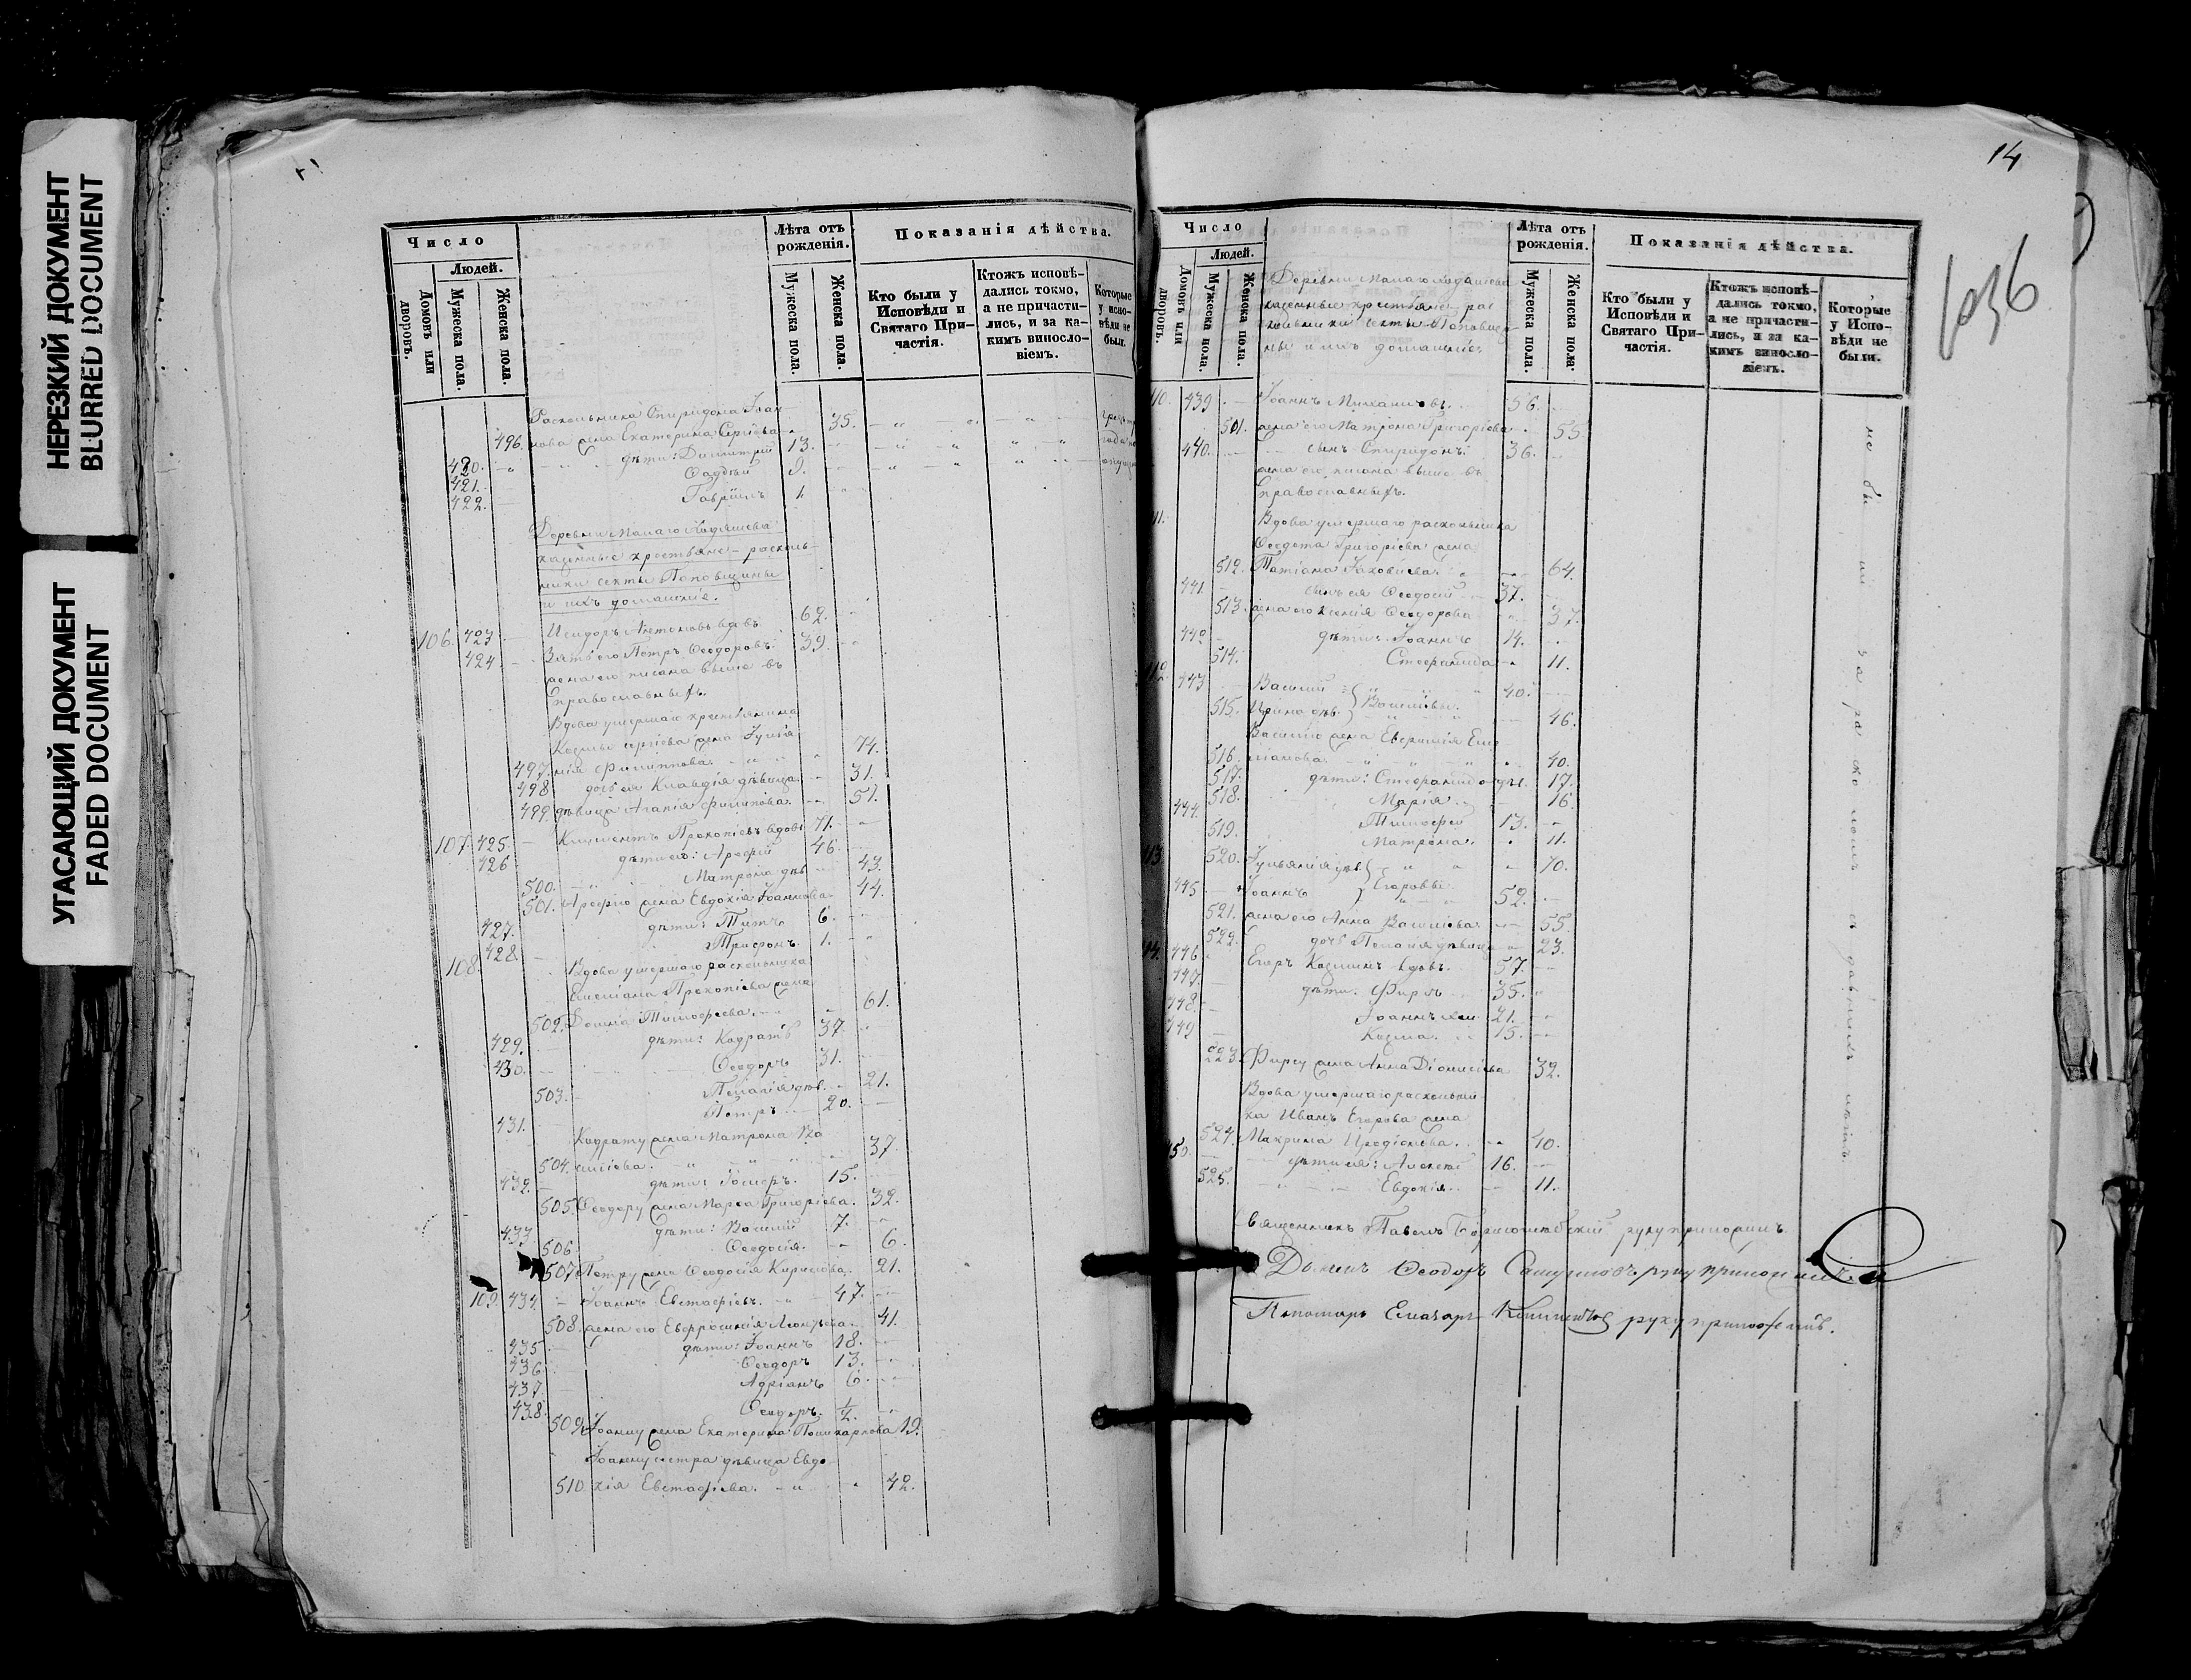 НЕРЕЗКИЙ ДОКУМЕНТ
BLURRED DOCUMENT
УГАСАЮЩИЙ ДОКУМЕНТ
FADED DOCUMENT
Число
Людей.
Домовъ или дворовъ.
Мужеска пола.
Женска пола.
Лѣта отъ рожденія.
Мужеска пола.
Женска пола.
Показанія дѣйства.
Кто были у Исповѣди и Святаго При-частія.
Ктожъ исповѣ-дались токмо, а не причасти-лись, и за ка-кимъ винослo-віемъ.
Которые у испо-вѣди не были.
Раскольника Спиридона Іоан-
496. нова жена Екатерина Сергіева 35.
420. дѣти: Димитрій 13.
421. Фаддей 9.
422. Гавріилъ 1.
Деревни Малаго
казенные крестьяне – расколь-
ники секты Поповщины
и ихъ домашніе.
106. 423 Исидоръ Антоновъ вдовъ 62.
424. Зять его Петръ Ѳеодоровъ. 39.
жена его писана выше въ
православныхъ.
Вдова умершаго крестьянина
Козмы Сергіева жена Іуліа
497. нія Филиппова. 74.
498 дочь ея Клавдія дѣвица 31.
499 дѣвица Агапія Филипова. 51.
107. 425. Климентъ Прокопіевъ вдовъ 71.
426 дѣти его: Арефій 46.
500. Матрона дѣв. 43.
501. Арефію жена Евдокія Іоаннова 44.
427. дѣти: Титъ 6.
428. Трифонъ. 1.
108. Вдова умершаго раскольника
Емеліана Прокопіева жена
502. Домна Тимофеева. 61.
429. дѣти: Кодратъ 37.
430. Ѳеодоръ 31.
503. Пелагія дѣв. 21.
431. Петръ 20.
Кодрату жена Матрона Ва
504. силіева. 37
432. дѣти: 15.
505. Ѳеодору жена Марѳа Григоріева. 32.
433 дѣти: Василій 7.
506. Ѳеодосія. 6.
507 Петру жена Ѳеодосія Кирилова. 21.
109. 434. Іоаннъ Евстафіевъ. 47.
508. жена его Евфросинія 41.
435 дѣти: Іоаннъ 18.
436 Ѳеодоръ 13.
437 Адріанъ 6.
438. Ѳеодоръ. ½.
509. Іоанну жена Екатерина Поликарпова 19.
Іоанну сестра дѣвица Евдо
510 кія Евстафіева. 42.
14
1036
Число
Людей.
Домовъ или дворовъ.
Мужеска пола.
Женска пола.
Деревни Малаго
казенные крестьяне рас
кольники секты Поповщи
ны и ихъ домашніе.
Лѣта отъ рожденія.
Мужеска пола.
Женска пола.
Показанія дѣйства.
Кто были у Исповѣди и Святаго При-частія.
Ктожъ исповѣ-дались токмо, а не причасти-лись, и за ка-кимъ винослo-віемъ.
Которые у Испо-вѣди не были.
439 Іоаннъ Михаиловъ. 56.
501. жена его Матрона Григоріева 55
440. сынъ Спиридонъ. 36.
жена его писана выше въ
православныхъ.
Вдова умершаго раскольника
Ѳеодота Григоріева жена
512. Татіана Іаковлева. 64.
441. сынъ ея Ѳеодосій 37.
513. жена его Ксенія Ѳеодорова 37.
442 дѣти: Іоаннъ 14.
514. Стефанида 11.
112. 443 Василій 40.
515. Ирина дѣв. Васильевы. 46.
Василію жена Евфимія Еме
516. ліанова. 40.
517. дѣти: Стефанида дѣв. 17.
518. Марія. 16.
444. Тимофей 13.
519. Матрона. 11.
520. Іуліанія дѣв. 70.
445 Іоаннъ Егоровы 52.
521. жена его Анна Василіева. 55.
522. дочь Пелагія дѣвица 23.
446 Егоръ Козминъ вдовъ. 57.
447. дѣти: Фирсъ 35.
448. Іоаннъ 21.
449 Козма. 15.
523. Фирсу жена Анна Діонисіева 32.
Вдова умершаго раскольни
ка Ивана Егорова жена
524. Макрина Иродіонова. 40.
450. дѣти ея: Алексѣй 16.
525. Евдокія. 11.
не были за расколомъ съ давнихъ лѣтъ.
Священникъ Павелъ руку приложилъ.
Дьячекъ Ѳеодоръ руку приложилъ.
Пономарь Елеазаръ руку приложилъ.